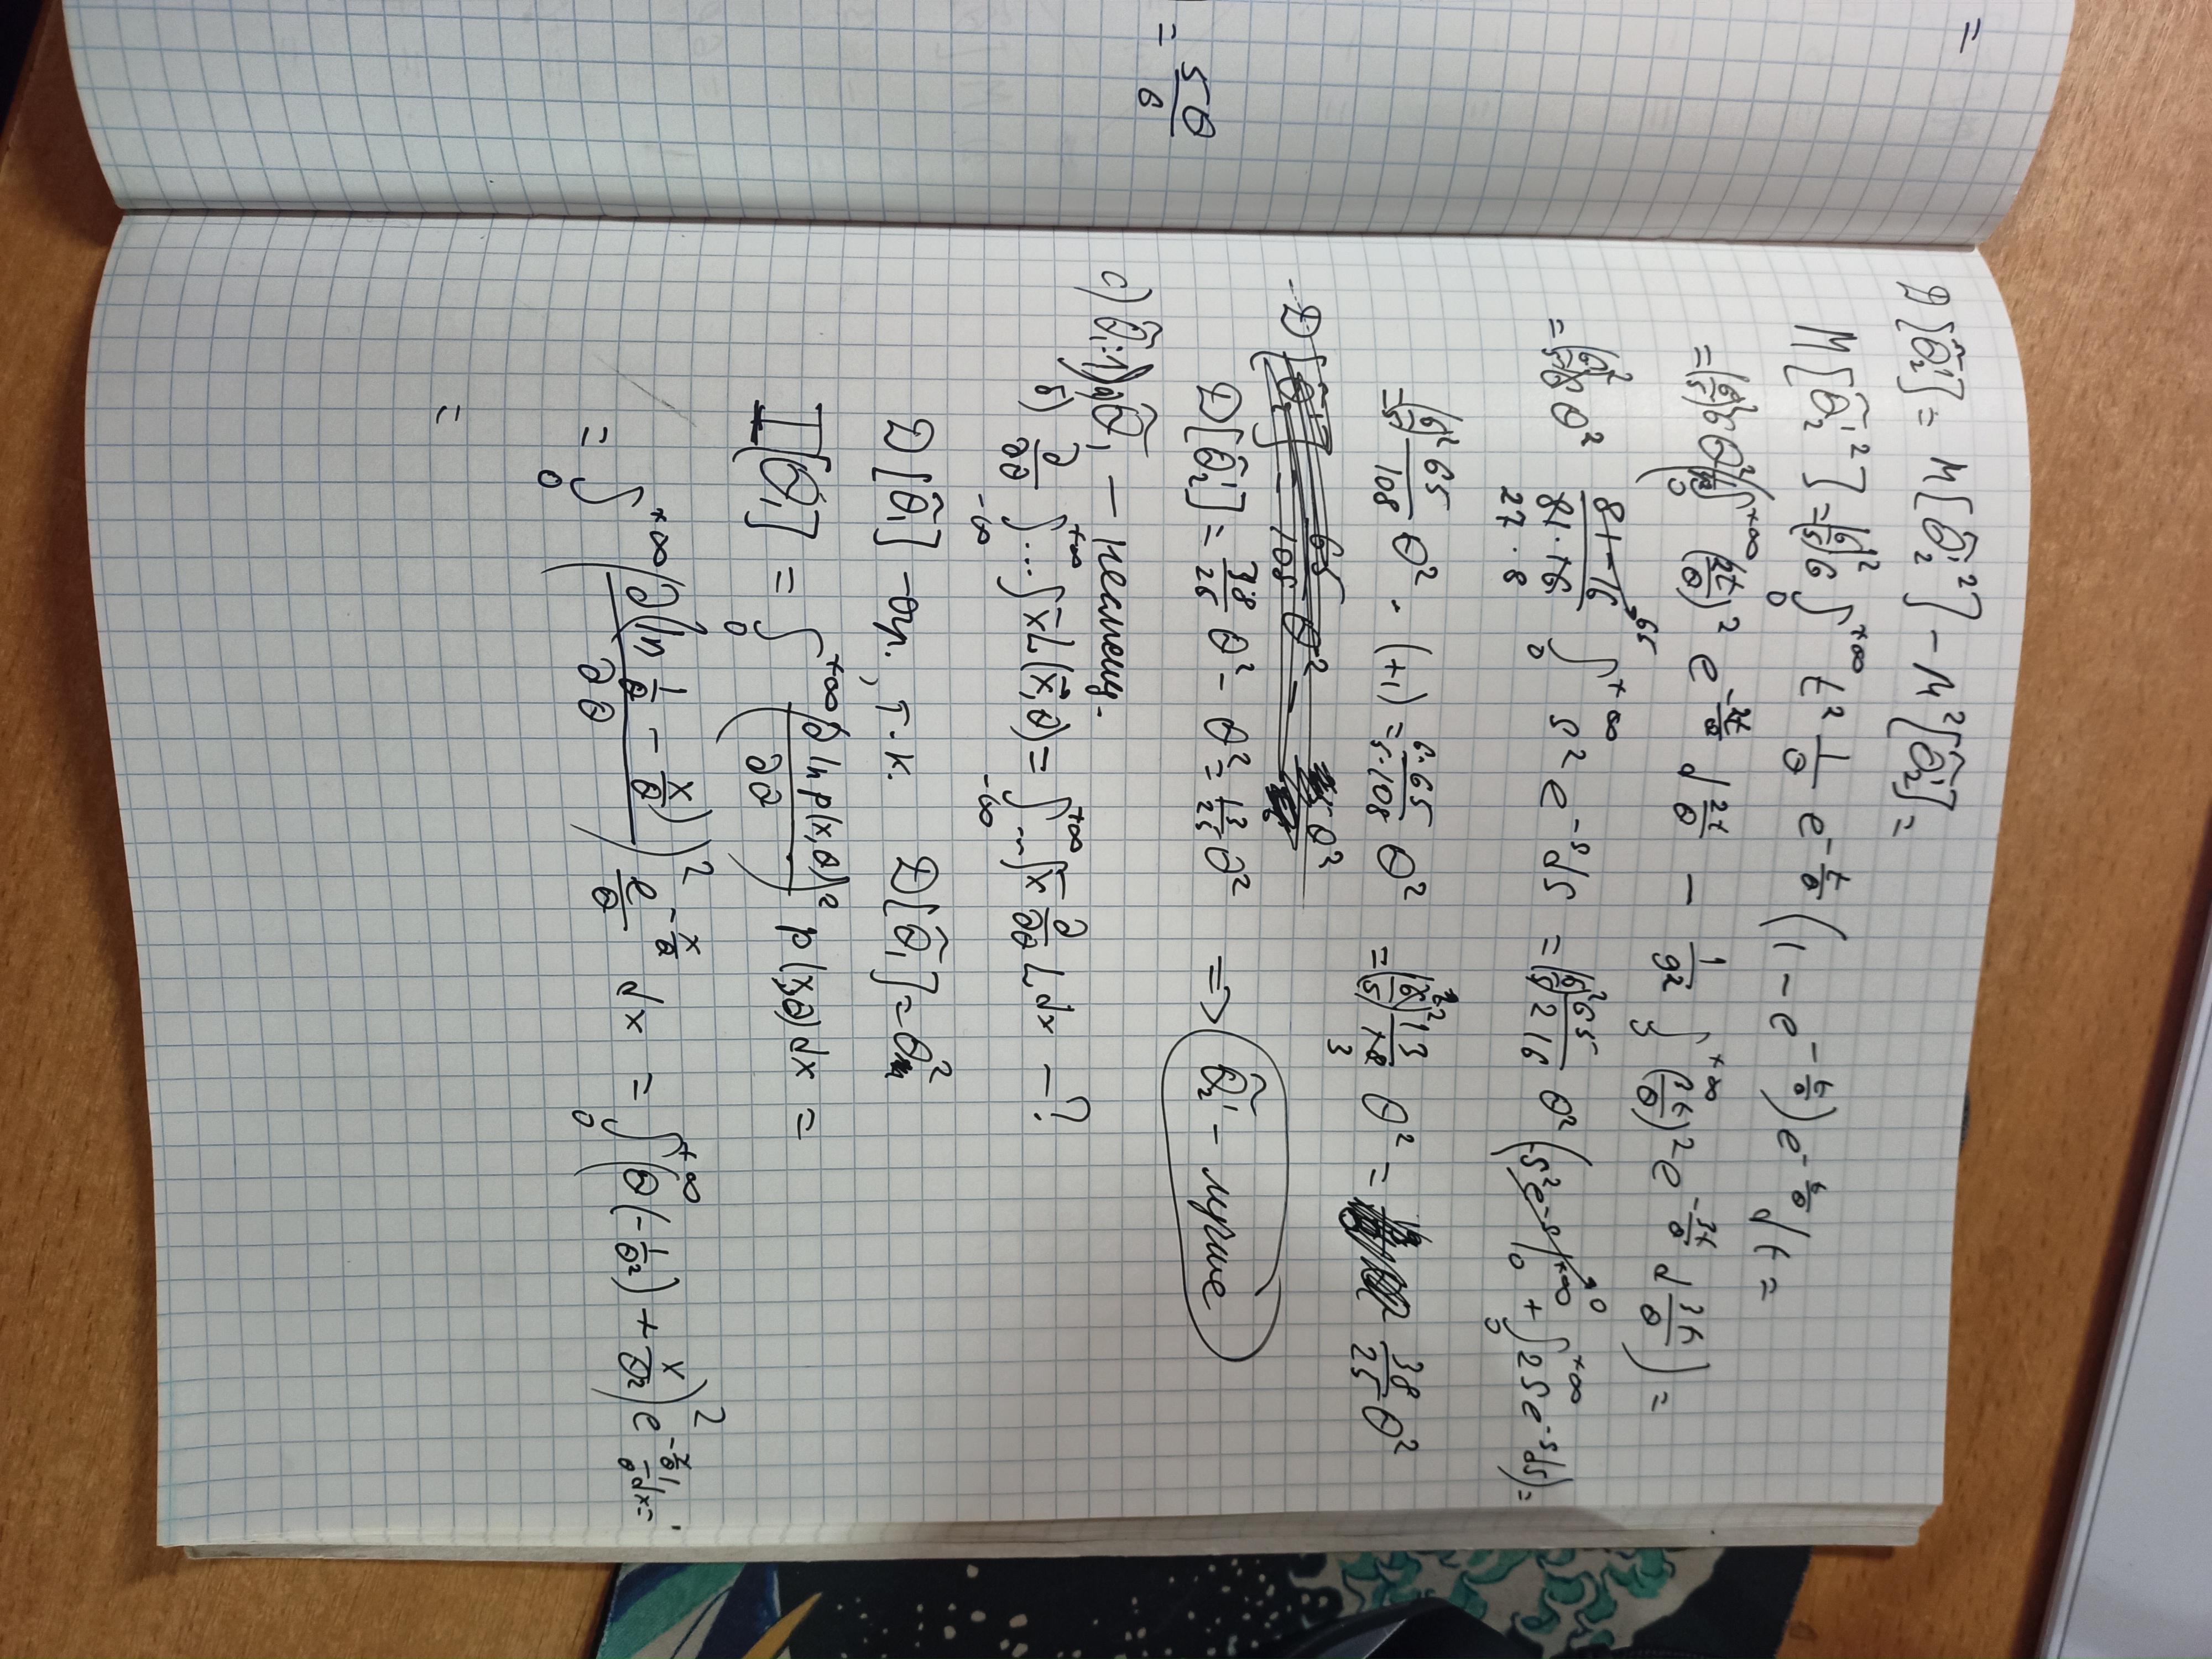 =
= 5θ/6
D[θ̃₂'] = M[θ̃₂'²] − M²[θ̃₂'] =
M[θ̃₂'²] = (6/5)² 6 ∫₀^{+∞} t² 1/θ e^{−t/θ} (1 − e^{−t/θ}) e^{−t/θ} dt =
= (6/5)² 6 θ² ( ∫₀^{+∞} (2t/θ)² e^{−2t/θ} d 2t/θ − 1/9² ∫₀^{+∞} (3t/θ)² e^{−3t/θ} d 3t/θ ) =
= (6/5)² 6 θ² (81−16)/(81·16) 65 ∫₀^{+∞} s² e^{−s} ds = (6/5)² 65/216 θ² ( −s² e^{−s} |₀^{+∞} 0 + ∫₀^{+∞} 2s e^{−s} ds ) =
27 · 8
= (6/5)² 65/108 θ² · (+1) = 6·65/5·108 θ² = (6/5)² 13/18 θ² = 38/25 θ²
3
D[θ̃₂'] = 65/108 θ² −
D[θ̃₂'] = 38/25 θ² − θ² = 13/25 θ² => θ̃₂' − лучше
c) θ̃₁: 1) а) θ̃₁ — несмещ.
б) ∂/∂θ ∫_{−∞}^{+∞} ... ∫ x̄ L(x⃗, θ) = ∫_{−∞}^{+∞} ... ∫ x̄ ∂/∂θ L dx − ?
D[θ̃₁] − огр., т.к. D[θ̃₁] = θ²
I[θ₁] = ∫₀^{+∞} (∂ ln p(x,θ)/∂θ)² p(x,θ) dx =
= ∫₀^{+∞} (∂(ln 1/θ − x/θ)/∂θ)² e^{−x/θ}/θ dx = ∫₀^{+∞} (θ(−1/θ²) + x/θ²)² e^{−x/θ} 1/θ dx =
=